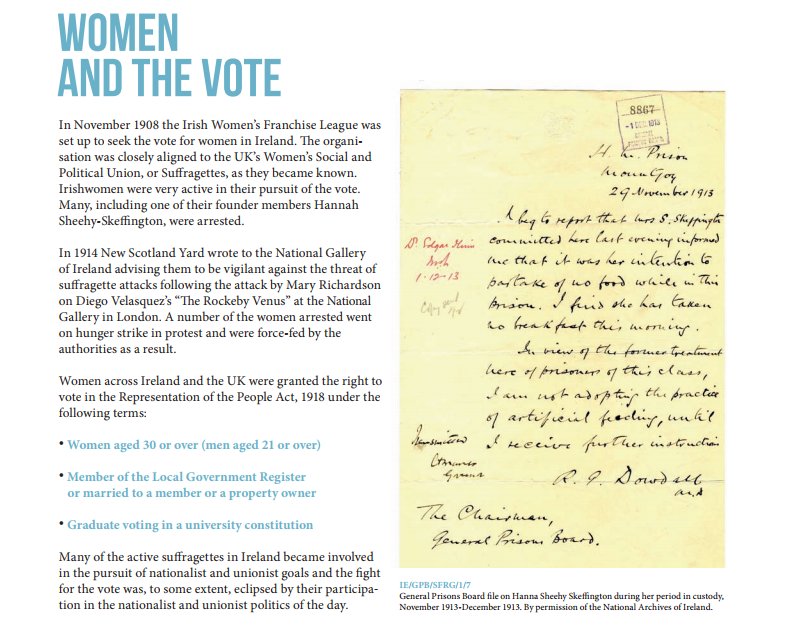 WOMEN
AND THE VOTE
In November 1908 the Irish Women's Franchise League was
set up to seek the vote for women in Ireland. The organi-
sation was closely aligned to the UK's Women's Social and
Political Union, or Suffragettes, as they became known.
Irishwomen were very active in their pursuit of the vote.
Many, including one of their founder members Hannah
Sheehy-Skeffington, were arrested.
In 1914 New Scotland Yard wrote to the National Gallery
of Ireland advising them to be vigilant against the threat of
suffragette attacks following the attack by Mary Richardson
on Diego Velasquez's "The Rockeby Venus" at the National
Gallery in London. A number of the women arrested went
on hunger strike in protest and were force-fed by the
authorities as a result.
Women across Ireland and the UK were granted the right to
vote in the Representation of the People Act, 1918 under the
following terms:
• Women aged 30 or over (men aged 21 or over)
• Member of the Local Government Register
or married to a member or a property owner
• Graduate voting in a university constitution
Many of the active suffragettes in Ireland became involved
in the pursuit of nationalist and unionist goals and the fight
for the vote was, to some extent, eclipsed by their participa-
tion in the nationalist and unionist politics of the day.
8867
H. M. Prison
Mountjoy
29 November 1913
I beg to report that Mrs S. Skeffington
committed here last evening informed
me that it was her intention to
partake of no food while in this
prison. I find she has taken
no breakfast this morning.
In view of the former treatment
here of prisoners of this class,
I am not adopting the practice
of artificial feeding, until
I receive further instruction
R. G. Dowdall
Dr. Edgar Flinn
1-12-13
The Chairman,
General Prisons Board.
IE/GPB/SFRG/1/7
General Prisons Board file on Hanna Sheehy Skeffington during her period in custody,
November 1913-December 1913. By permission of the National Archives of Ireland.